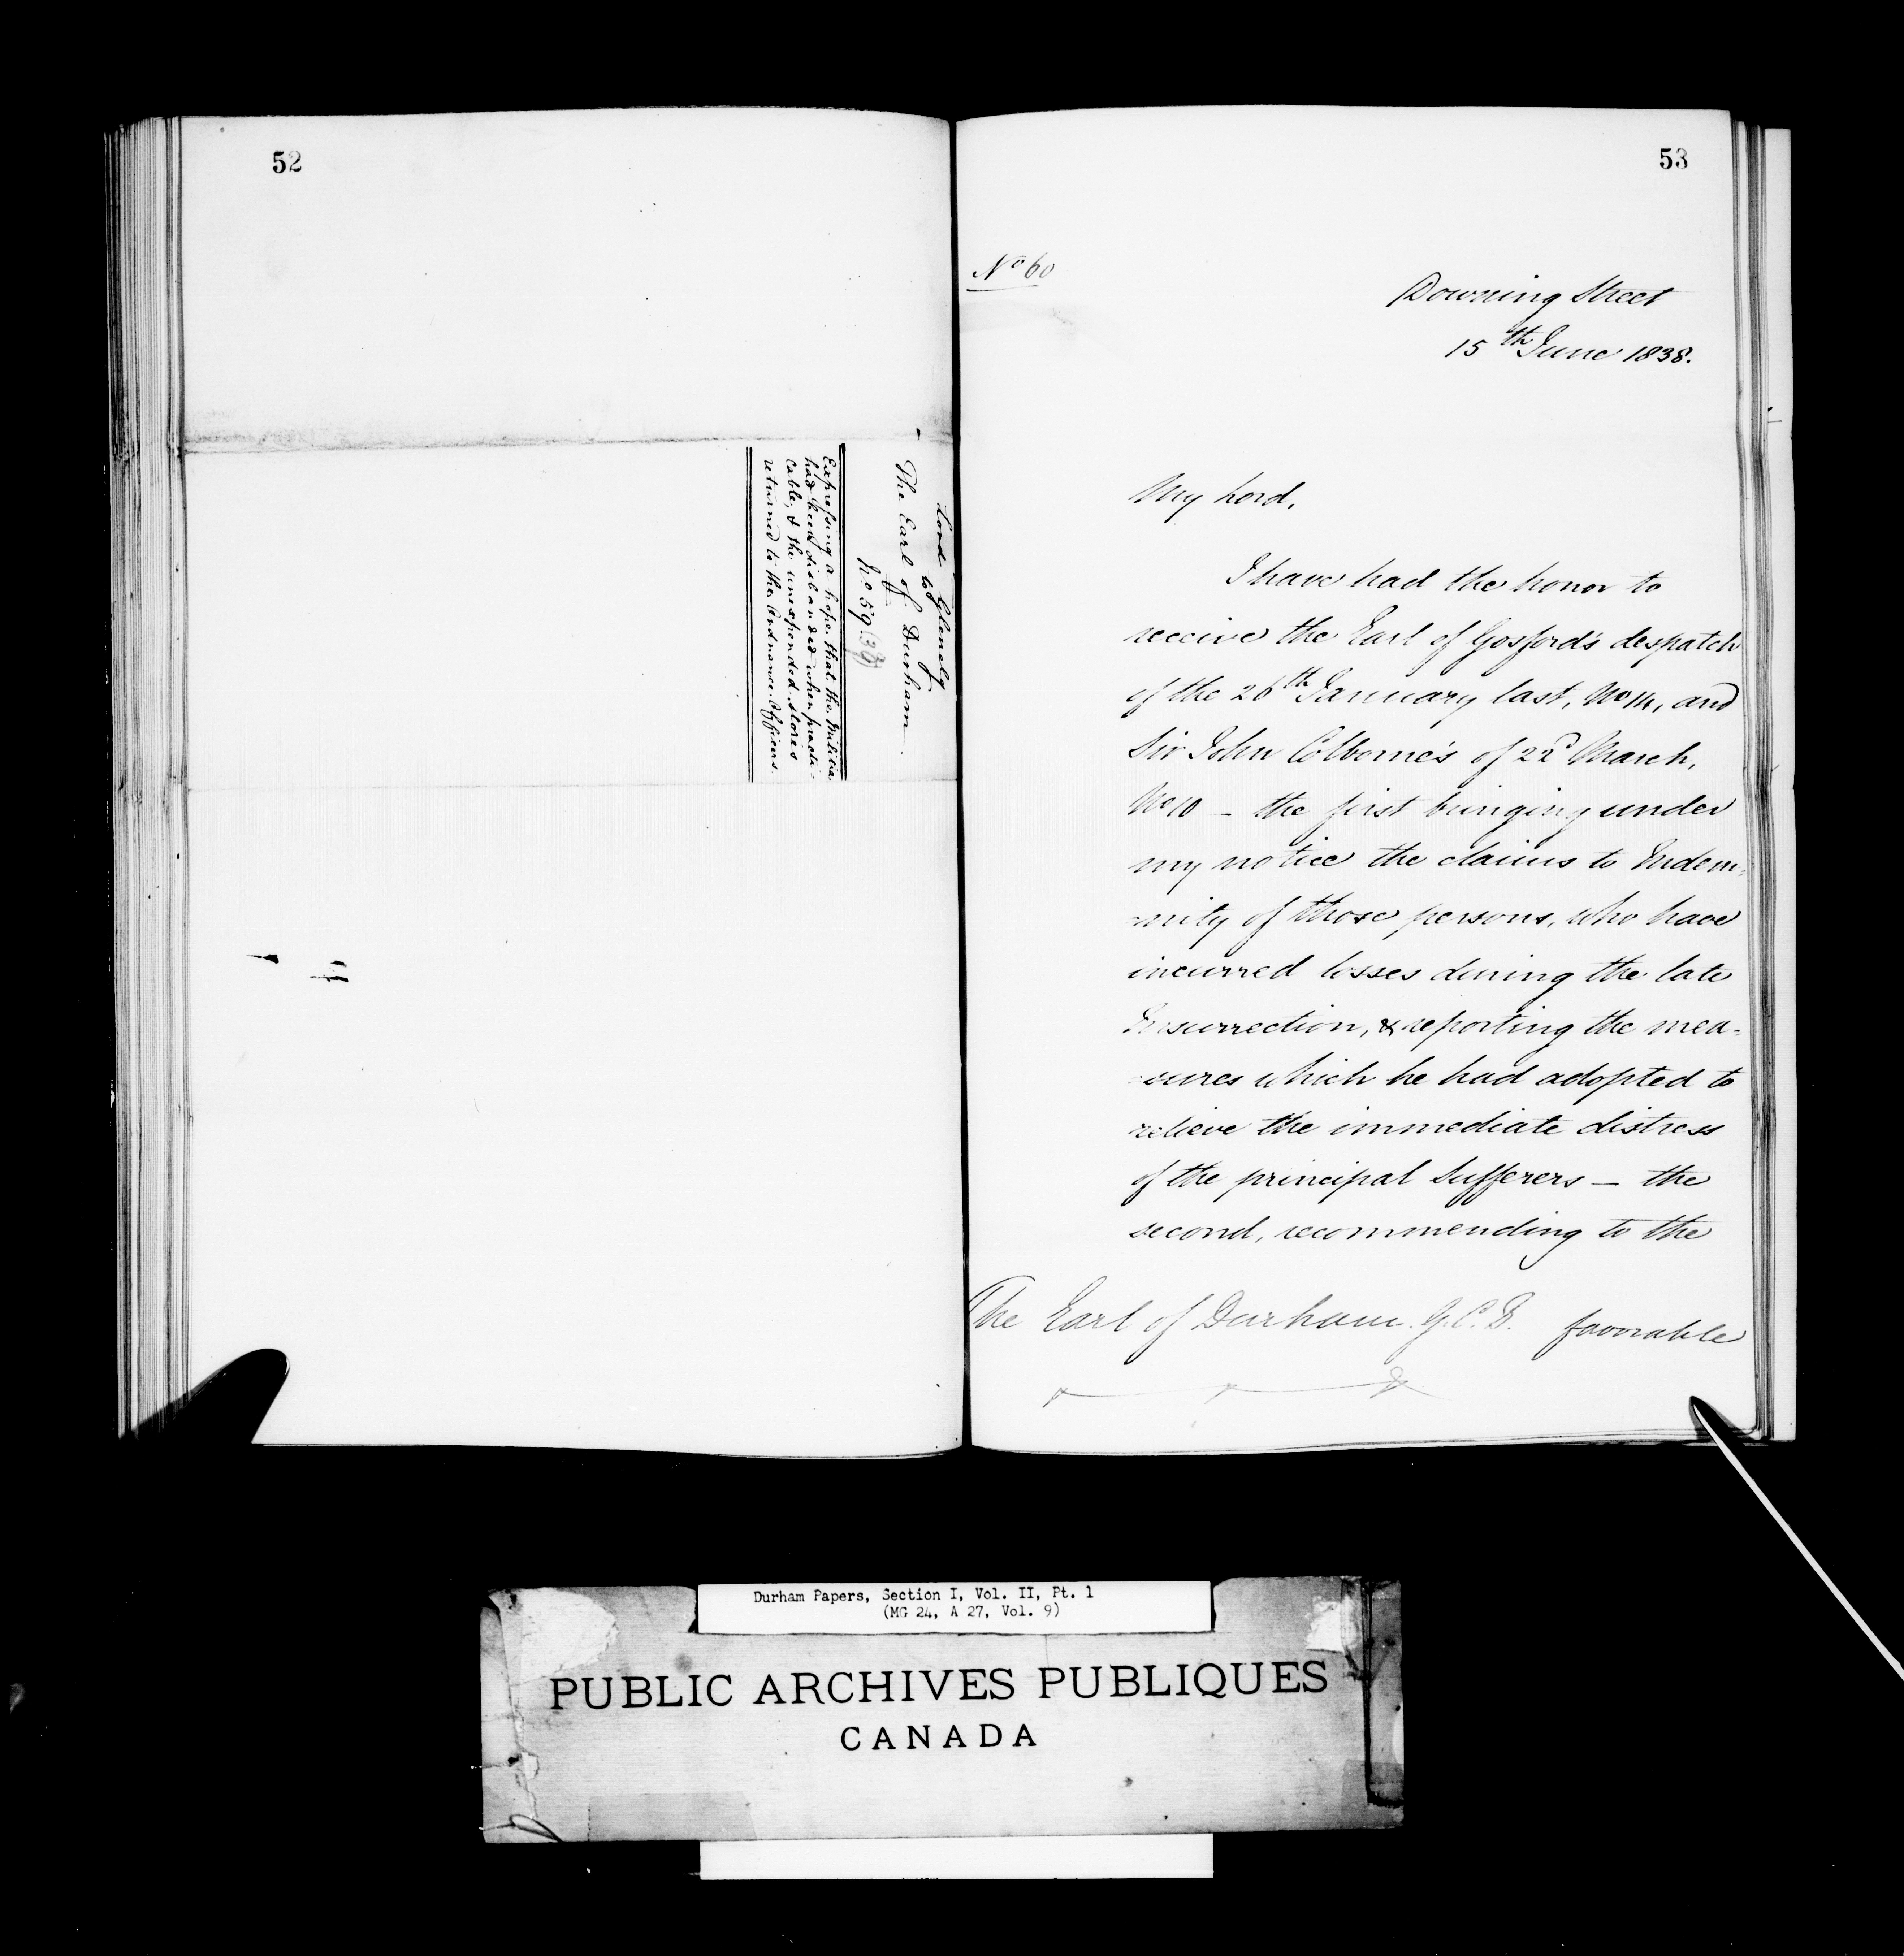 52
Lord Glenelg
to
The Earl of Durham.
No 59.
Expressing a hope that the Militia
had been disbanded when practi-
cable, & the unexpended stores
returned to the Ordnance Officers.
53
No 60
Downing Street
15th June 1838.
My Lord,
I have had the honor to
receive the Earl of Gosford's despatch
of the 26th January last, No 14, and
Sir John Colborne's of 22d March,
No 10 – the first bringing under
my notice the claims to Indem-
-nity of those persons, who have
incurred losses during the late
Insurrection, & reporting the mea-
-sures which he had adopted to
relieve the immediate distress
of the principal Sufferers – the
second, recommending to the
The Earl of Durham. G.C.B. favorable
Durham Papers, Section I, Vol. II, Pt. 1
(MG 24, A 27, Vol. 9)
PUBLIC ARCHIVES PUBLIQUES
CANADA